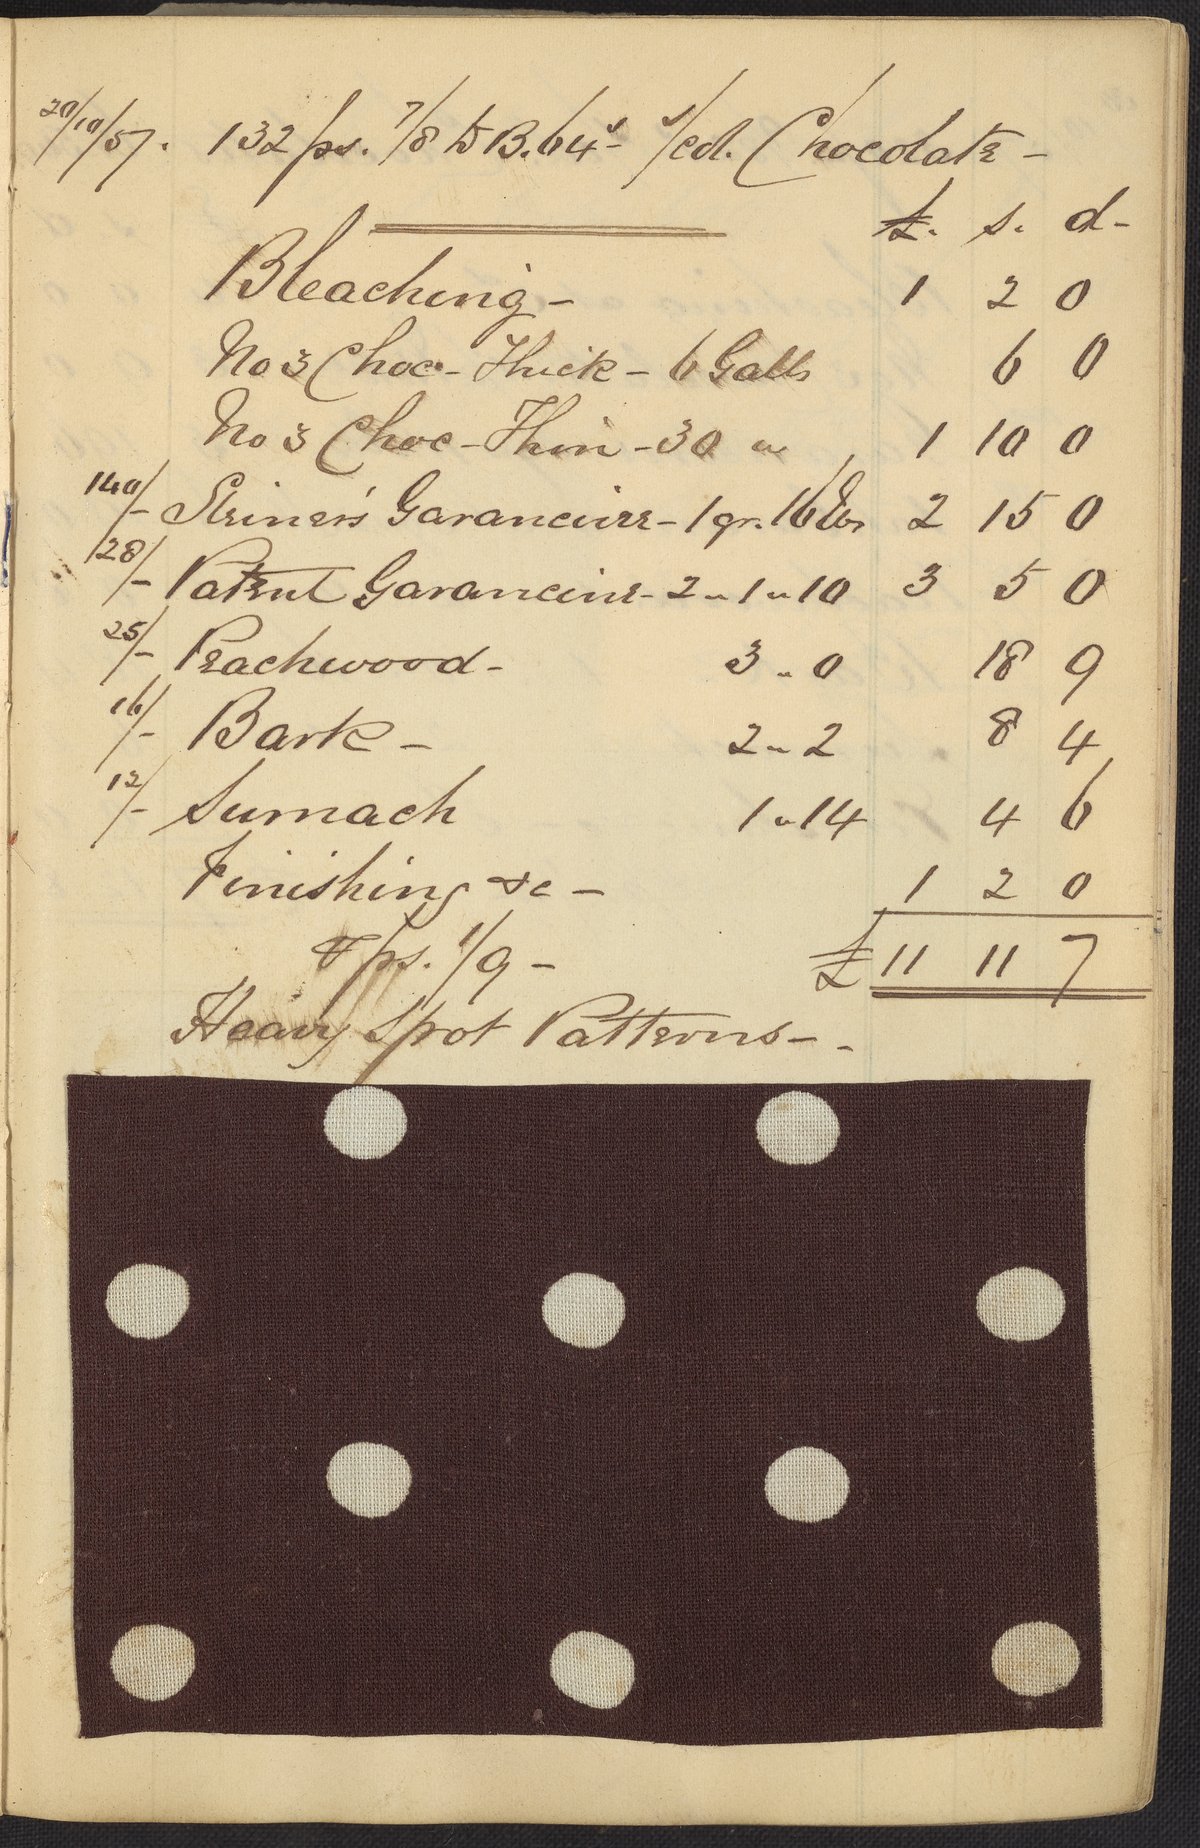 20/10/57. 132 ps. 7/8 B. 64s 1/cd. Chocolate -
£. s. d -
Bleaching - 1 2 0
No 3 Choc - Thick - 6 Galls 6 0
No 3 Choc - Thin - 30 " 1 10 0
140/- Steiner's Garancine - 1 qr. 16 lbs 2 15 0
128/- Patent Garancine - 2 " 1 " 10 3 5 0
25/- Peachwood - 3 " 0 18 9
16/- Bark - 2 " 2 8 4
12/- Sumach 1 " 14 4 6
Finishing &c - 1 2 0
ps. 1/9 - £ 11 11 7
Heavy Spot Patterns - -